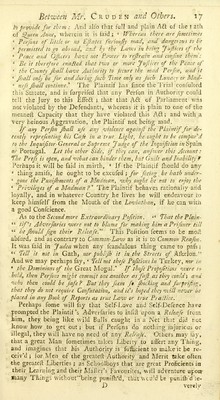 Between Mr. CRUDEN and Others. 17
to provide for them: And also this full and plain Act of the 12th
of Queen Anne, wherein it is said; "Whereas there are sometimes
" Persons of little or no Estates furiously mad, and dangerous to be
" permitted to go abroad, and by the Laws in being Justices of the
" Peace and Officers have not Power to restrain and confine them:
" Be it therefore enacted that two or more Justices of the Peace of
" the County shall have Authority to secure the mad Person, and he
" shall only be for and during such Time only as such Lunacy or Mad-
" ness shall continue." The Plaintif has since the Trial consulted
this Statute, and is surprised that any Person in Authority could
tell the Jury to this Effect; that that Act of Parliament was
not violated by the Defendants, whereas it is plain to one of the
meanest Capacity that they have violated this Act; and with a
very heinous Aggravation, the Plaintif not being mad.
If any Person shall use any violence against the Plaintif for do-
ing
representing his Case in a true Light, he ought to be compar'd
to the Inquisitor-General or Supreme Judge of the Inquisition in Spain
or Portugal. Let the other Side, if they can, answer this Account:
The Press is open, and what can hinder them, but Guilt and Inability?
Perhaps it will be said in mirth, " If the Plaintif should do any
" thing amiss, he ought to be excused; for being he hath under-
" gone the Punishments of a Madman, why ought he not to enjoy the
" Privileges of a Madman?" The Plaintif behaves rationally and
loyally, and in whatever Country he lives he will endeavour to
keep himself from the Mouth of the Leviathan, if he can with
a good Conscience.
As to the Second more Extraordinary Position. " That the Plain-
" tif's Adversaries were not to blame for making him a Prisoner till
" he should sign their Release." This Position seems to be most
absurd, and as contrary to Common-Law as it is to Common Reason.
It was said in Judea when any scandalous thing came to pass;
" Tell it not in Gath, nor publish it in the Streets of Askelon."
And we may perhaps say, " Tell not these Positions in Turkey, nor in
" the Dominions of the Great Mogul." If these Propositions were to
hold, then Persons might commit one another as fast as they could; and
who then could be safe? But they seem so shocking and surprising,
that they do not require Confutation, and it's hoped they will never be
placed in any Book of Reports as true Law or true Practice.
Perhaps some will say that Self-Love and Self-Defence have
prompted the Plaintif's Adversaries to insist upon a Release from
him, they being like wild Bulls caught in a Net that did not
know how to get out; but if Persons do nothing injurious or
illegal, they will have no need of any Release. Others may say,
that a great Man sometimes takes Liberty to assert any Thing,
and imagines that his Authority is sufficient to make it be re-
ceiv'd; for Men of the greatest Authority and Merit take often
the greatest Liberties; as Schoolboys that are great Proficients in
their Learning and their Master's Favourites, will adventure upon
many Things without being punished, this would be punish'd se-
D verely